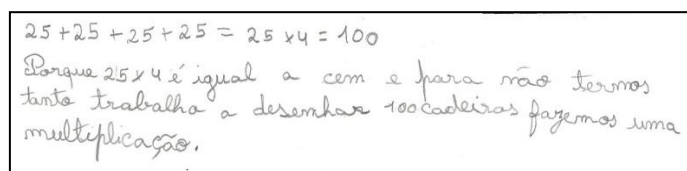 25 + 25 + 25 + 25 = 25 x 4 = 100
Porque 25 x 4 é igual a cem e para não termos
tanto trabalha a desenhar 100 cadeiras fazemos uma
multiplicação.